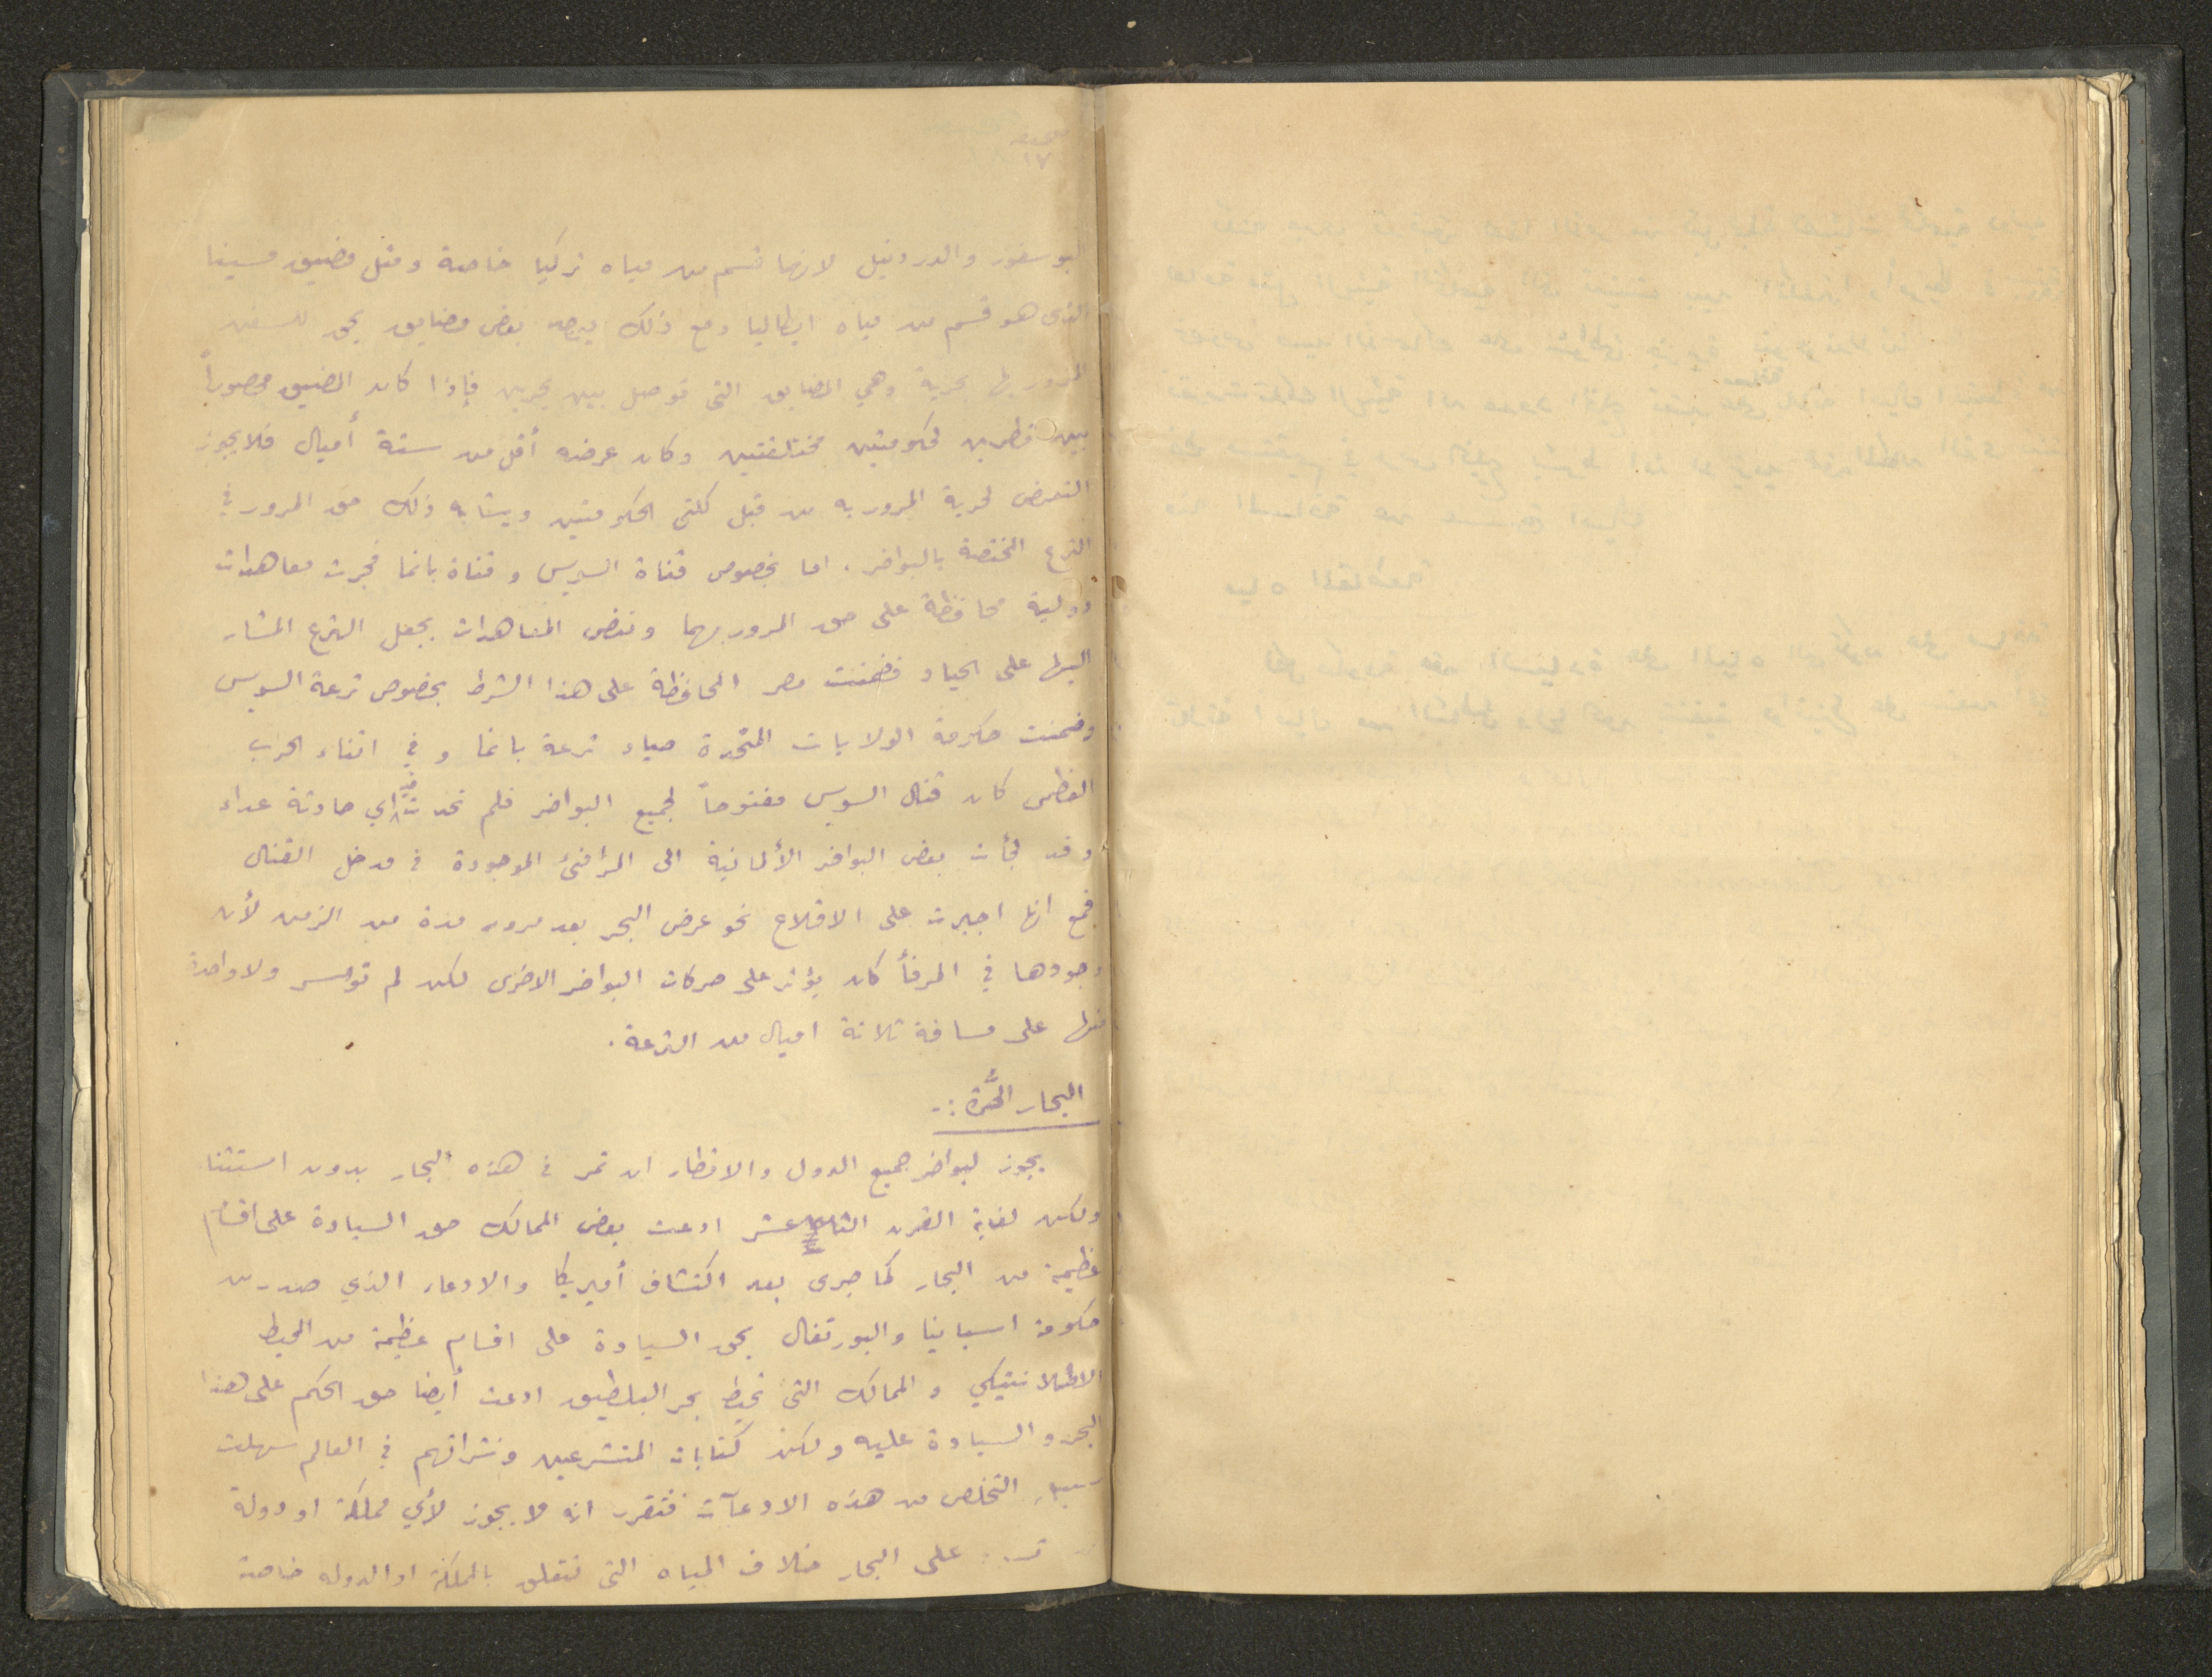 صحيفة
١٧
البوسفور والدردنيل لانها قسم من مياه تركيا خاصة ومثل مضيق مسينا
الذى هو قسم من مياه ايطاليا ومع ذلك يوجد بعض مضايق يحق للسفن
المرور بها بحرية وهي المضايق التى توصل بين بحرين فإذا كان المضيق محصوراً
بين قطرين لحكومتين مختلفتين وكان عرضه أقل من ستة أميال فلا يجوز
التعرض لحرية المرور به من قبل كلتى الحكومتين ويشابه ذلك حق المرور في
الترع المختصة بالبواخر . اما بخصوص قناة السويس وقناة بانما فجرت معاهدات
دولية محافظة على حق المرور بهما وتنص المعاهدات بجعل الترع المشار
اليها على الحياد فضمنت مصر المحافظة على هذا الشرط بخصوص ترعة السويس
وضمنت حكومة الولايات المتحدة حياد ترعة بانما وفي اثناء الحرب
العظمى كان قنال السويس مفتوحاً لجميع البواخر فلم تحدث فيه اي حادثة عداء
وقد لجأت بعض البواخر الألمانية الى المرافئ الموجودة في مدخل القنال
فمع انها اجبرت على الاقلاع نحو عرض البحر بعد مرور مدة من الزمن لأن
وجودها في المرفأ كان يؤثر على حركات البواخر الاخرى لكن لم تؤسر ولا واحدة
منها على مسافة ثلاثة اميال من الترعة .
البحار الحُرَّة :-
يجوز لبواخر جميع الدول والاقطار ان تمر في هذه البحار بدون استثنا
ولكن لغاية القرن عشر ادعت بعض الممالك حق السيادة على اقسام
عظيمة من البحار كما جرى بعد اكتشاف أميريكا والادعاء الذي صدر من
حكومة اسبانيا والبورتغال بحق السيادة على اقسام عظيمة من المحيط
الاتلانتيكي و الممالك التى تحيط بحر البلطيق ادعت أيضا حق الحكم على هذا
البحر والسيادة عليه ولكن كتابات المتشرعين ونشراتهم في العالم سهلت
سبيل التخلص من هذه الادعآت فتقرر انه لا يجوز لأي مملكة او دولة
على البحار خلاف المياه التى تتعلق بالمملكة او الدوله خاصة